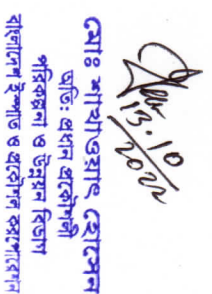 13.10
2022
মোঃ শাখাওয়াৎ হোসেন
অতি: প্রধান প্রকৌশলী
পরিকল্পনা ও উন্নয়ন বিভাগ
বাংলাদেশ ইস্পাত ও প্রকৌশল করপোরেশন